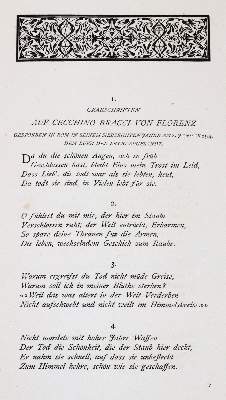 1.
GRABSCHRIFTEN
AUF CECCHINO BRACCI VON FLORENZ
GESTORBEN IN ROM IN SEINEM
Da du die schönen Augen, ach so früh
Geschlossen hast, bleibt Eins mein Trost im Leid,
Dass Lieb', die todt war als sie lebten, heut,
Da todt sie sind, in Vielen lebt für sie.
2.
O fühlest du mit mir, der hier im Staub
Verschlossen ruht, der Welt entrückt, Erbarmen,
So spare deine Thränen für die Armen,
Die leben, wechselndem Geschick zum Raube.
3.
Warum ergreifst du Tod nicht müde Greise,
Warum soll ich in meiner Blüthe sterben?
»Weil das was altert in der Welt Verderben
Nicht aufschwebt und nicht weilt im
4.
Nicht mordeten mit hoher Jahre Waffen
Der Tod die Schönheit, die der Staub hier deckt,
Er nahm sie schnell, auf dass sie unbefleckt
Zum Himmel kehre, schön wie sie geschaffen.